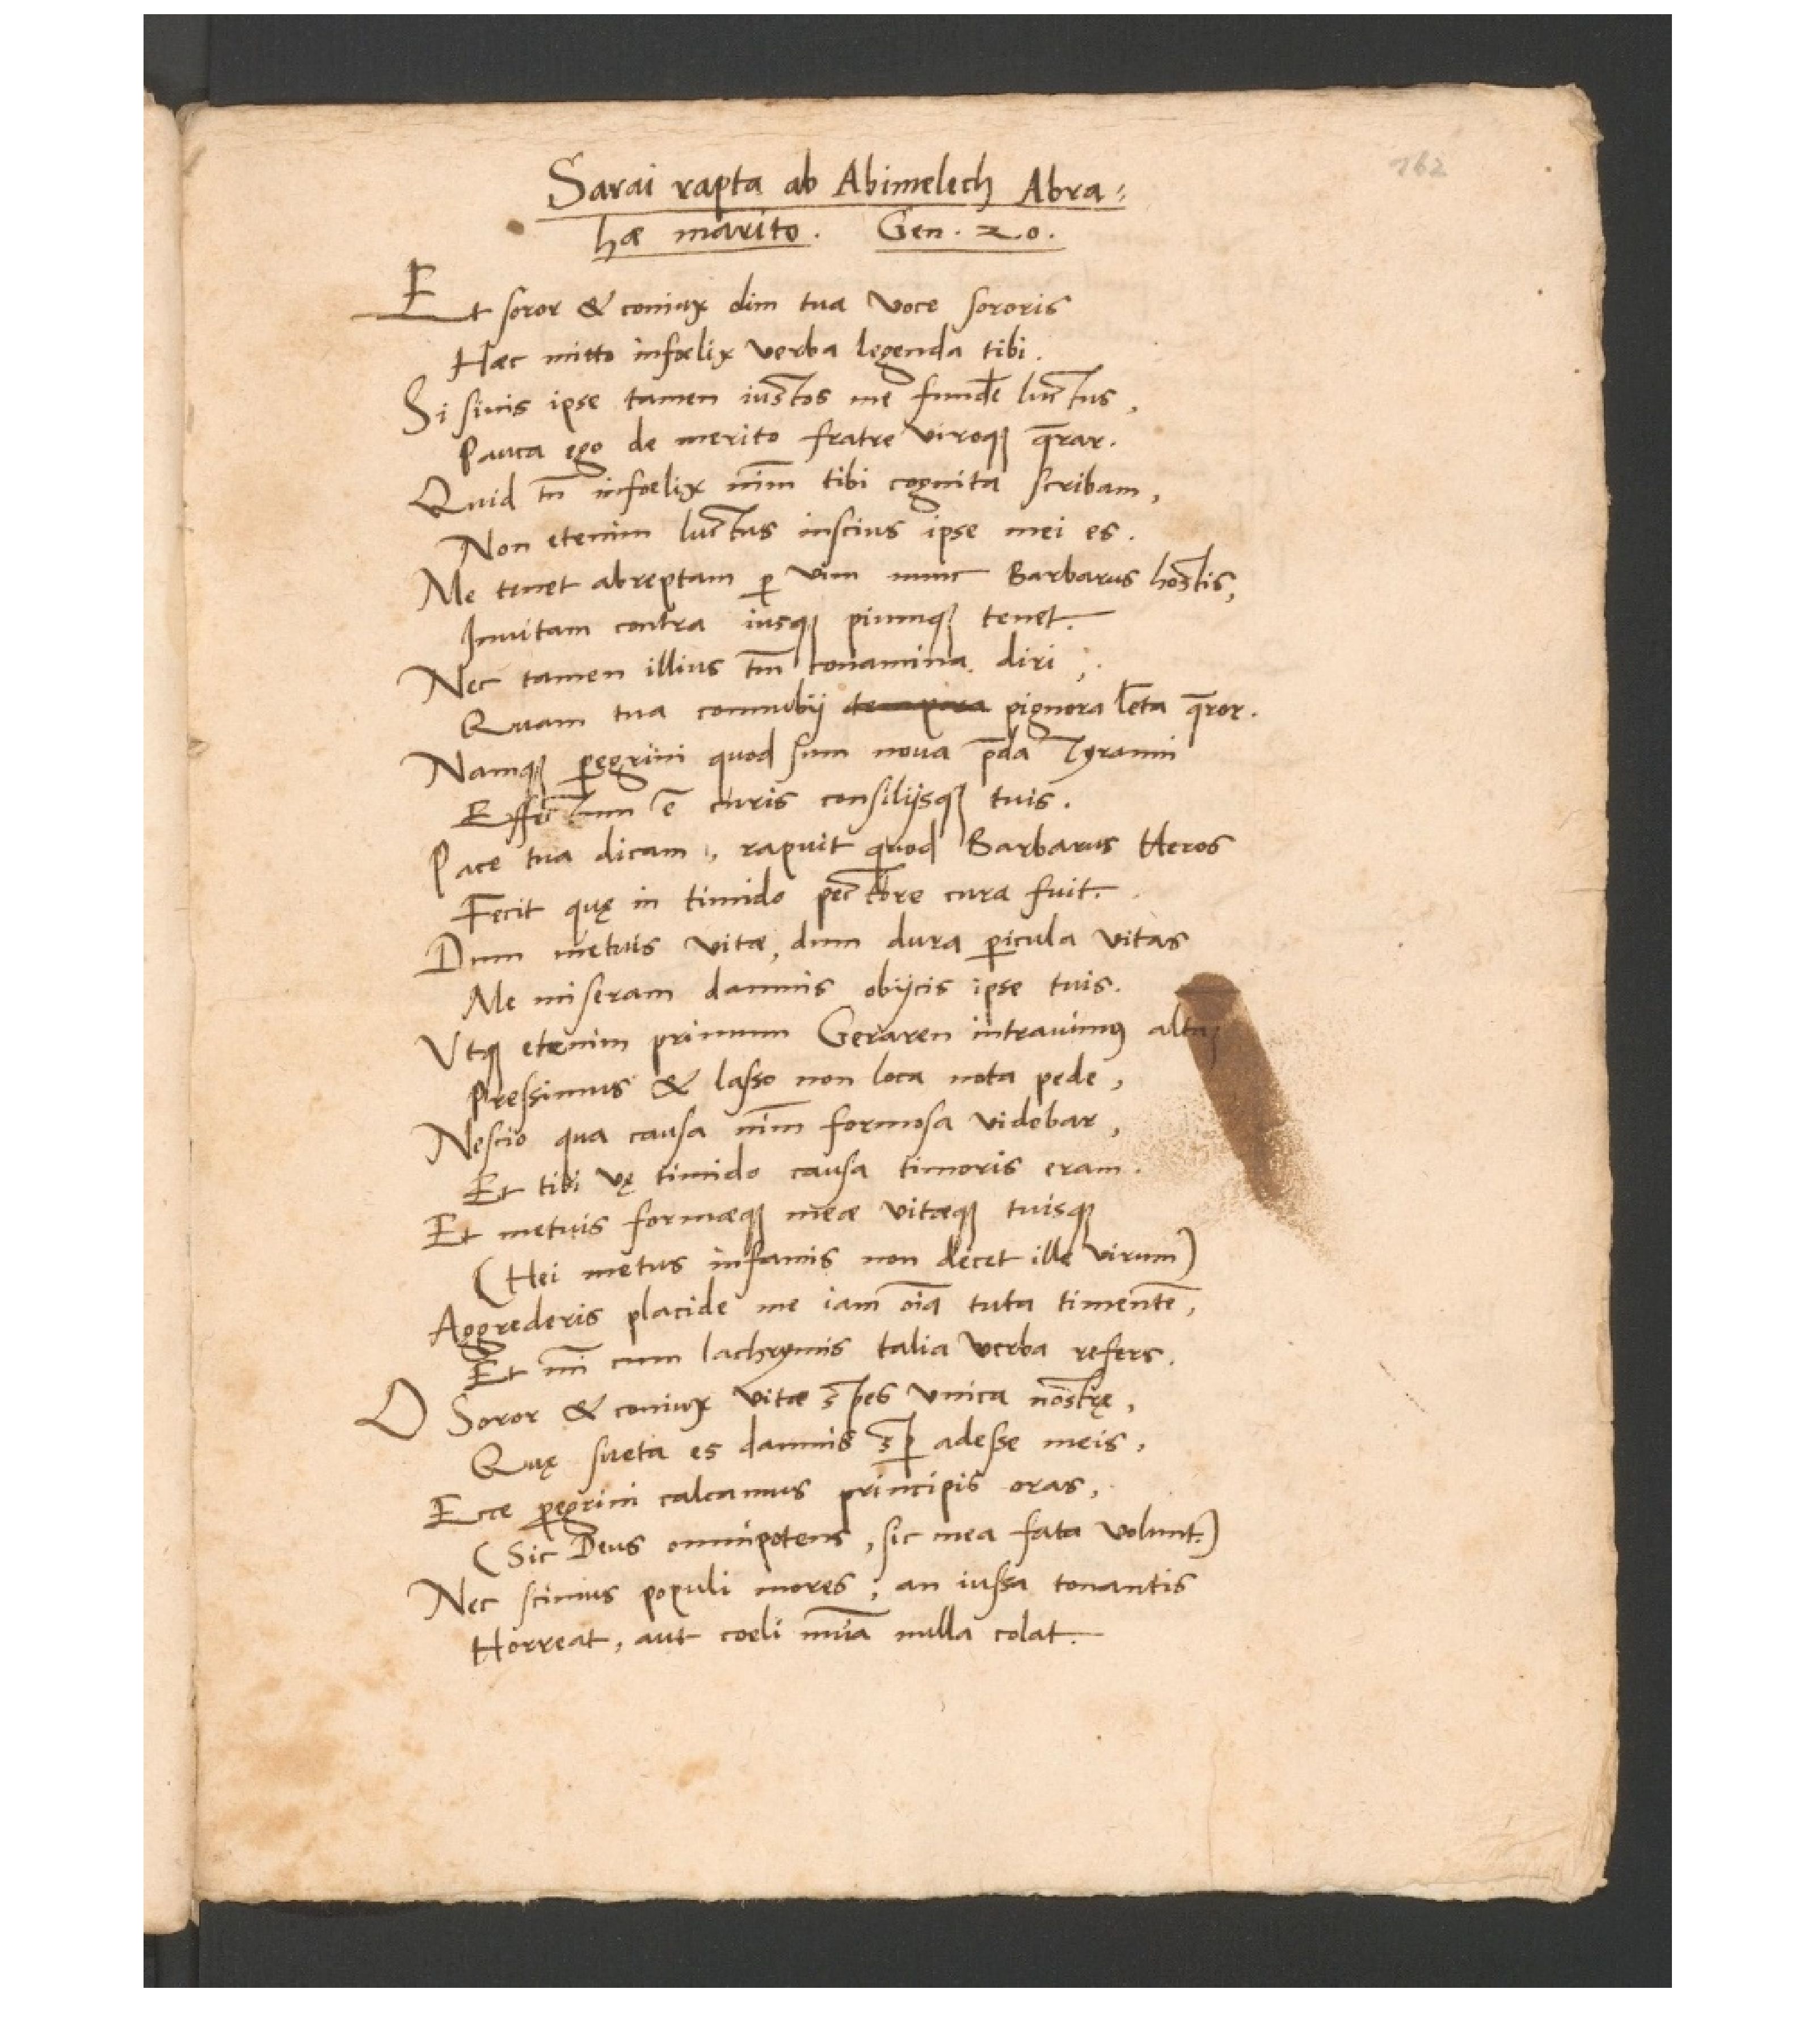 162
Sarai rapta ab Abimelech Abra⸗
hæ marito. Gen. 20.
Et soror & coniux dim tua voce sororis
Hæc mitto infœlix verba legenda tibi.
Si sinis ipse tamen iustos me fund̄e luctus,
Pauca ego de merito fratre viroqꝫ q̄rar.
Quid tn̄ infœlix nim̄ tibi cognita scribam,
Non etenim luctus inscius ipse mei es.
Me tenet abreptam ꝑ vim nunc Barbarus hostis,
Inuitam contra iusqꝫ piumqꝫ tenet.
Nec tamen illius tm̄ conamina diri,
Quam tua connubij pignora lęta q̄ror.
Namqꝫ ꝑegrini quod sum noua p̄da Tyranni
Effectum ē curis consilijsqꝫ tuis.
Pace tua dicam, rapuit quod Barbarus Heros
Fecit quę in timido pectore cura fuit.
Dum metuis vitæ, dum dura ꝑicula vitas
Me miseram damnis obijcis ipse tuis.
Vtqꝫ etenim primum Geraren intrauimꝰ
Pressimus & lasso non loca nota pede,
Nescio qua causa nim̄ formosa videbar,
Et tibi vę timido causa timoris eram.
Et metuis formæqꝫ meæ vitæqꝫ tuisqꝫ
(Hei metus infamis non decet ille virum)
Aggrederis placide me iam oīa tuta timentē,
Et mī cum lachrymis talia verba refers.
O Soror & coniux vitæ spes vnica nostrę,
Quę sueta es damnis sꝑ adesse meis,
Ecce ꝑegrini calcamus principis oras,
(Sic Deus omnipotens, sic mea fata volunt.)
Nec scimus populi mores, an iussa tonantis
Horreat, aut coeli nuīa nulla colat.